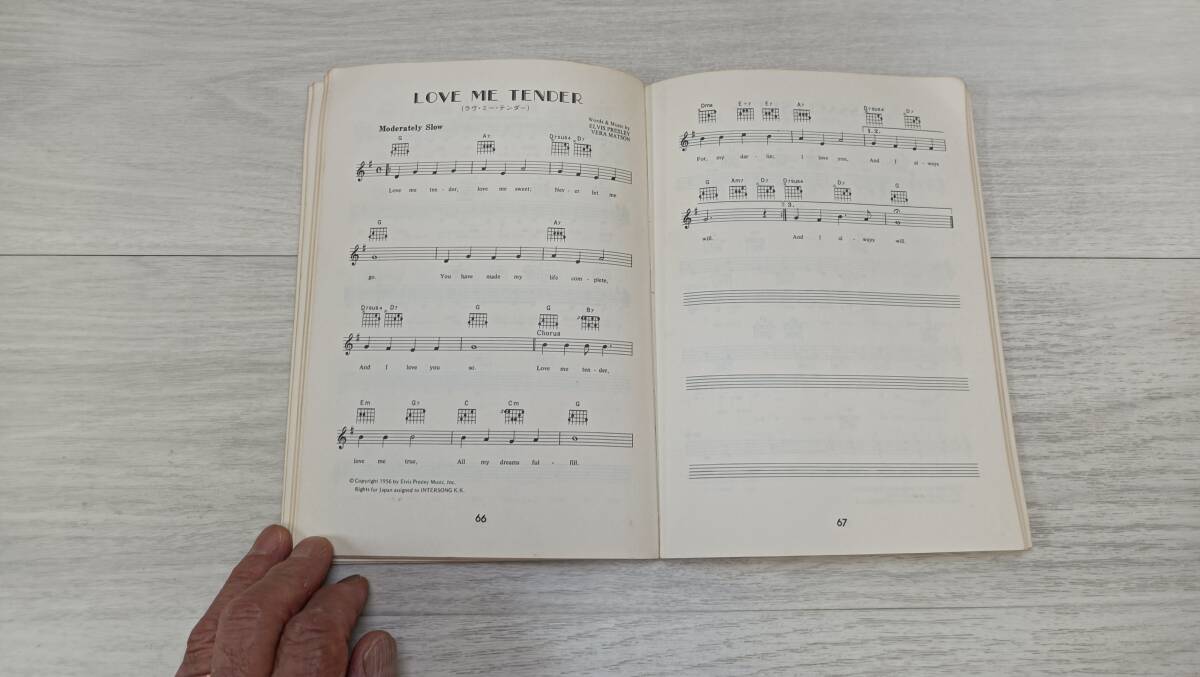 LOVE ME TENDER
(ラヴ・ミー・テンダー)
Words & Music by
ELVIS PRESLEY
VERA MATSON
Moderately Slow
G A7 D7sus4 D7
Love me ten- der, love me sweet; Nev- er let me
G A7
go. You have made my life com- plete,
D7sus4 D7 G G B7
Chorus
And I love you so. Love me ten- der,
Em G7 C Cm G
love me true, All my dreams ful- fill.
© Copyright 1956 by Elvis Presley Music, Inc.
Rights for Japan assigned to INTERSONG K.K.
66
E7 E7 A7 D7sus4 D7
1.2.
For, my dar- lin', I love you, And I al- ways
G Am7 D7 D7sus4 D7 G
3.
will. And I al- ways will.
67